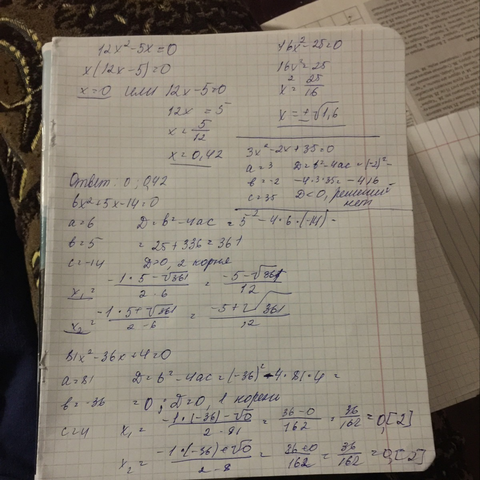 12x²-5x=0
x(12x-5)=0
x=0 или 12x-5=0
12x = 5
x = 5/12
x = 0,42
Ответ: 0; 0,42
16x²-25=0
16x²=25
x² = 25/16
x = ±√1,6
3x²-2x+35=0
a=3 D=b²-4ac = (-2)²-
b=-2 -4·3·35= -416
c=35 D<0, решений
нет
6x²+5x-14=0
a=6 D=b²-4ac = 5²-4·6·(-14) =
b=5 = 25+336=361
c=-14 D>0, 2 корня
x₁ = (-1·5-√361)/(2·6) = (-5-√361)/12
x₂ = (-1·5+√361)/(2·6) = (-5+√361)/12
81x²-36x+4=0
a=81 D=b²-4ac=(-36)²-4·81·4=
b=-36 =0; D=0, 1 корень
c=4 x₁ = (-1·(-36)-√0)/(2·81) = (36-0)/162 = 36/162 = 0,[2]
x₂ = (-1·(-36)+√0)/(2·8 = (36+0)/162 = 36/162 = 0,[2]